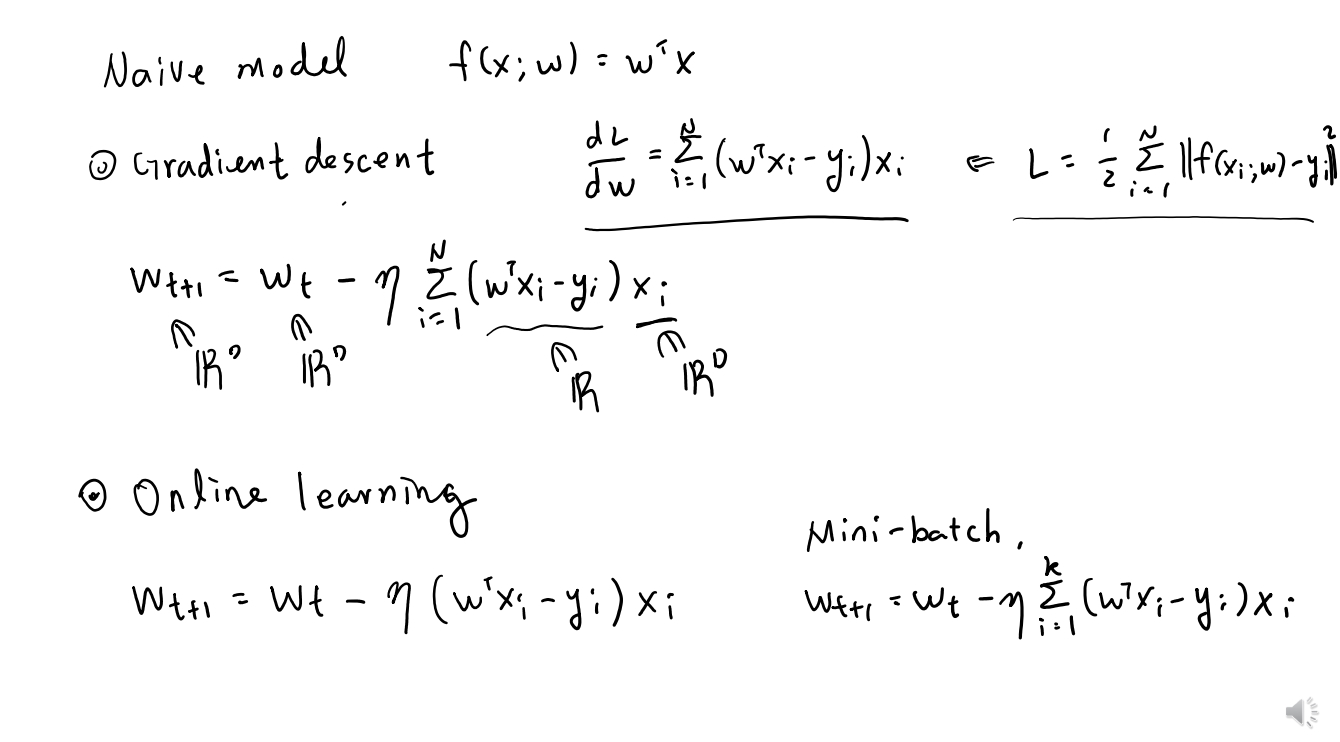 Naive model f(x; w) = wᵀx
⊙ Gradient descent dL/dw = Σ_{i=1}^{N} (wᵀxᵢ - yᵢ)xᵢ ⇐ L = 1/2 Σ_{i=1}^{N} ||f(xᵢ; w) - yᵢ||²
w_{t+1} = w_t - η Σ_{i=1}^{N} (wᵀxᵢ - yᵢ) xᵢ
∩ ∩ ∩ ∩
ℝᴰ ℝᴰ ℝ ℝᴰ
⊙ Online learning
Mini-batch,
w_{t+1} = w_t - η (wᵀxᵢ - yᵢ) xᵢ
w_{t+1} = w_t - η Σ_{i=1}^{k} (wᵀxᵢ - yᵢ) xᵢ